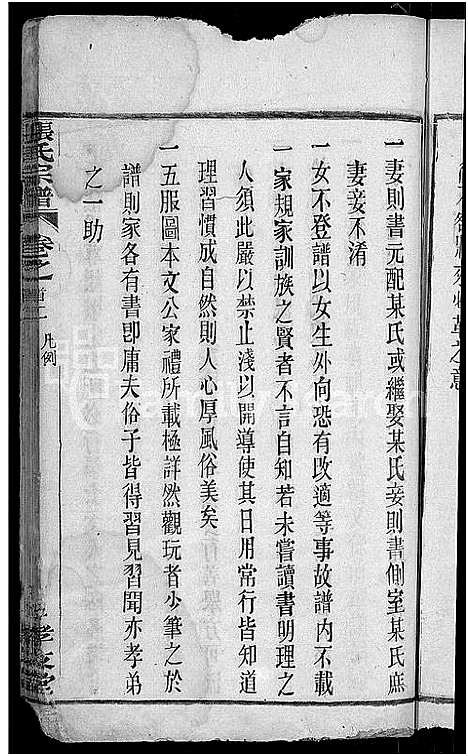 一妻則書元配某氏或繼娶某氏妾則書側室某氏庶
妻妾不淆
一女不登譜以女生外向恐有改適等事故譜內不載
一家規家訓族之賢者不言自知若未嘗讀書明理之
人須此嚴以禁止淺以開導使其日用常行皆知道
理習慣成自然則人心厚風俗美矣
一五服圖本文公家禮所載極詳然觀玩者少筆之於
譜則家各有書卽庸夫俗子皆得習見習聞亦孝弟
之一助
張氏宗譜
卷之首
凡例
孝友堂